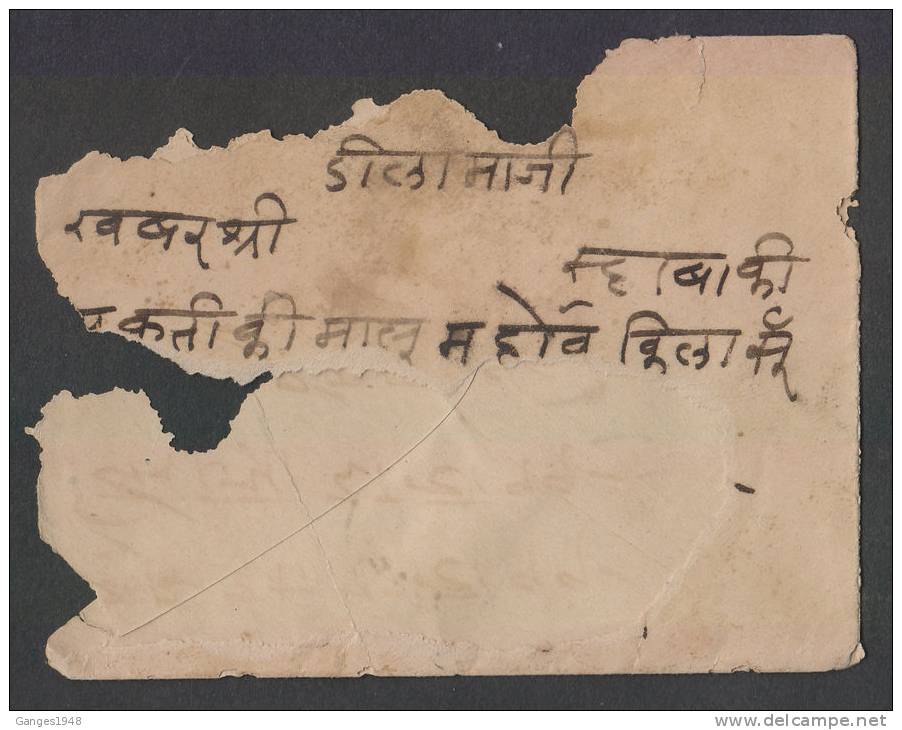 डीलामाजी
खबरश्री
म्हाबाकी
कतीकी मालूम होवे किलासूँ
Ganges1948
www.delcampe.net